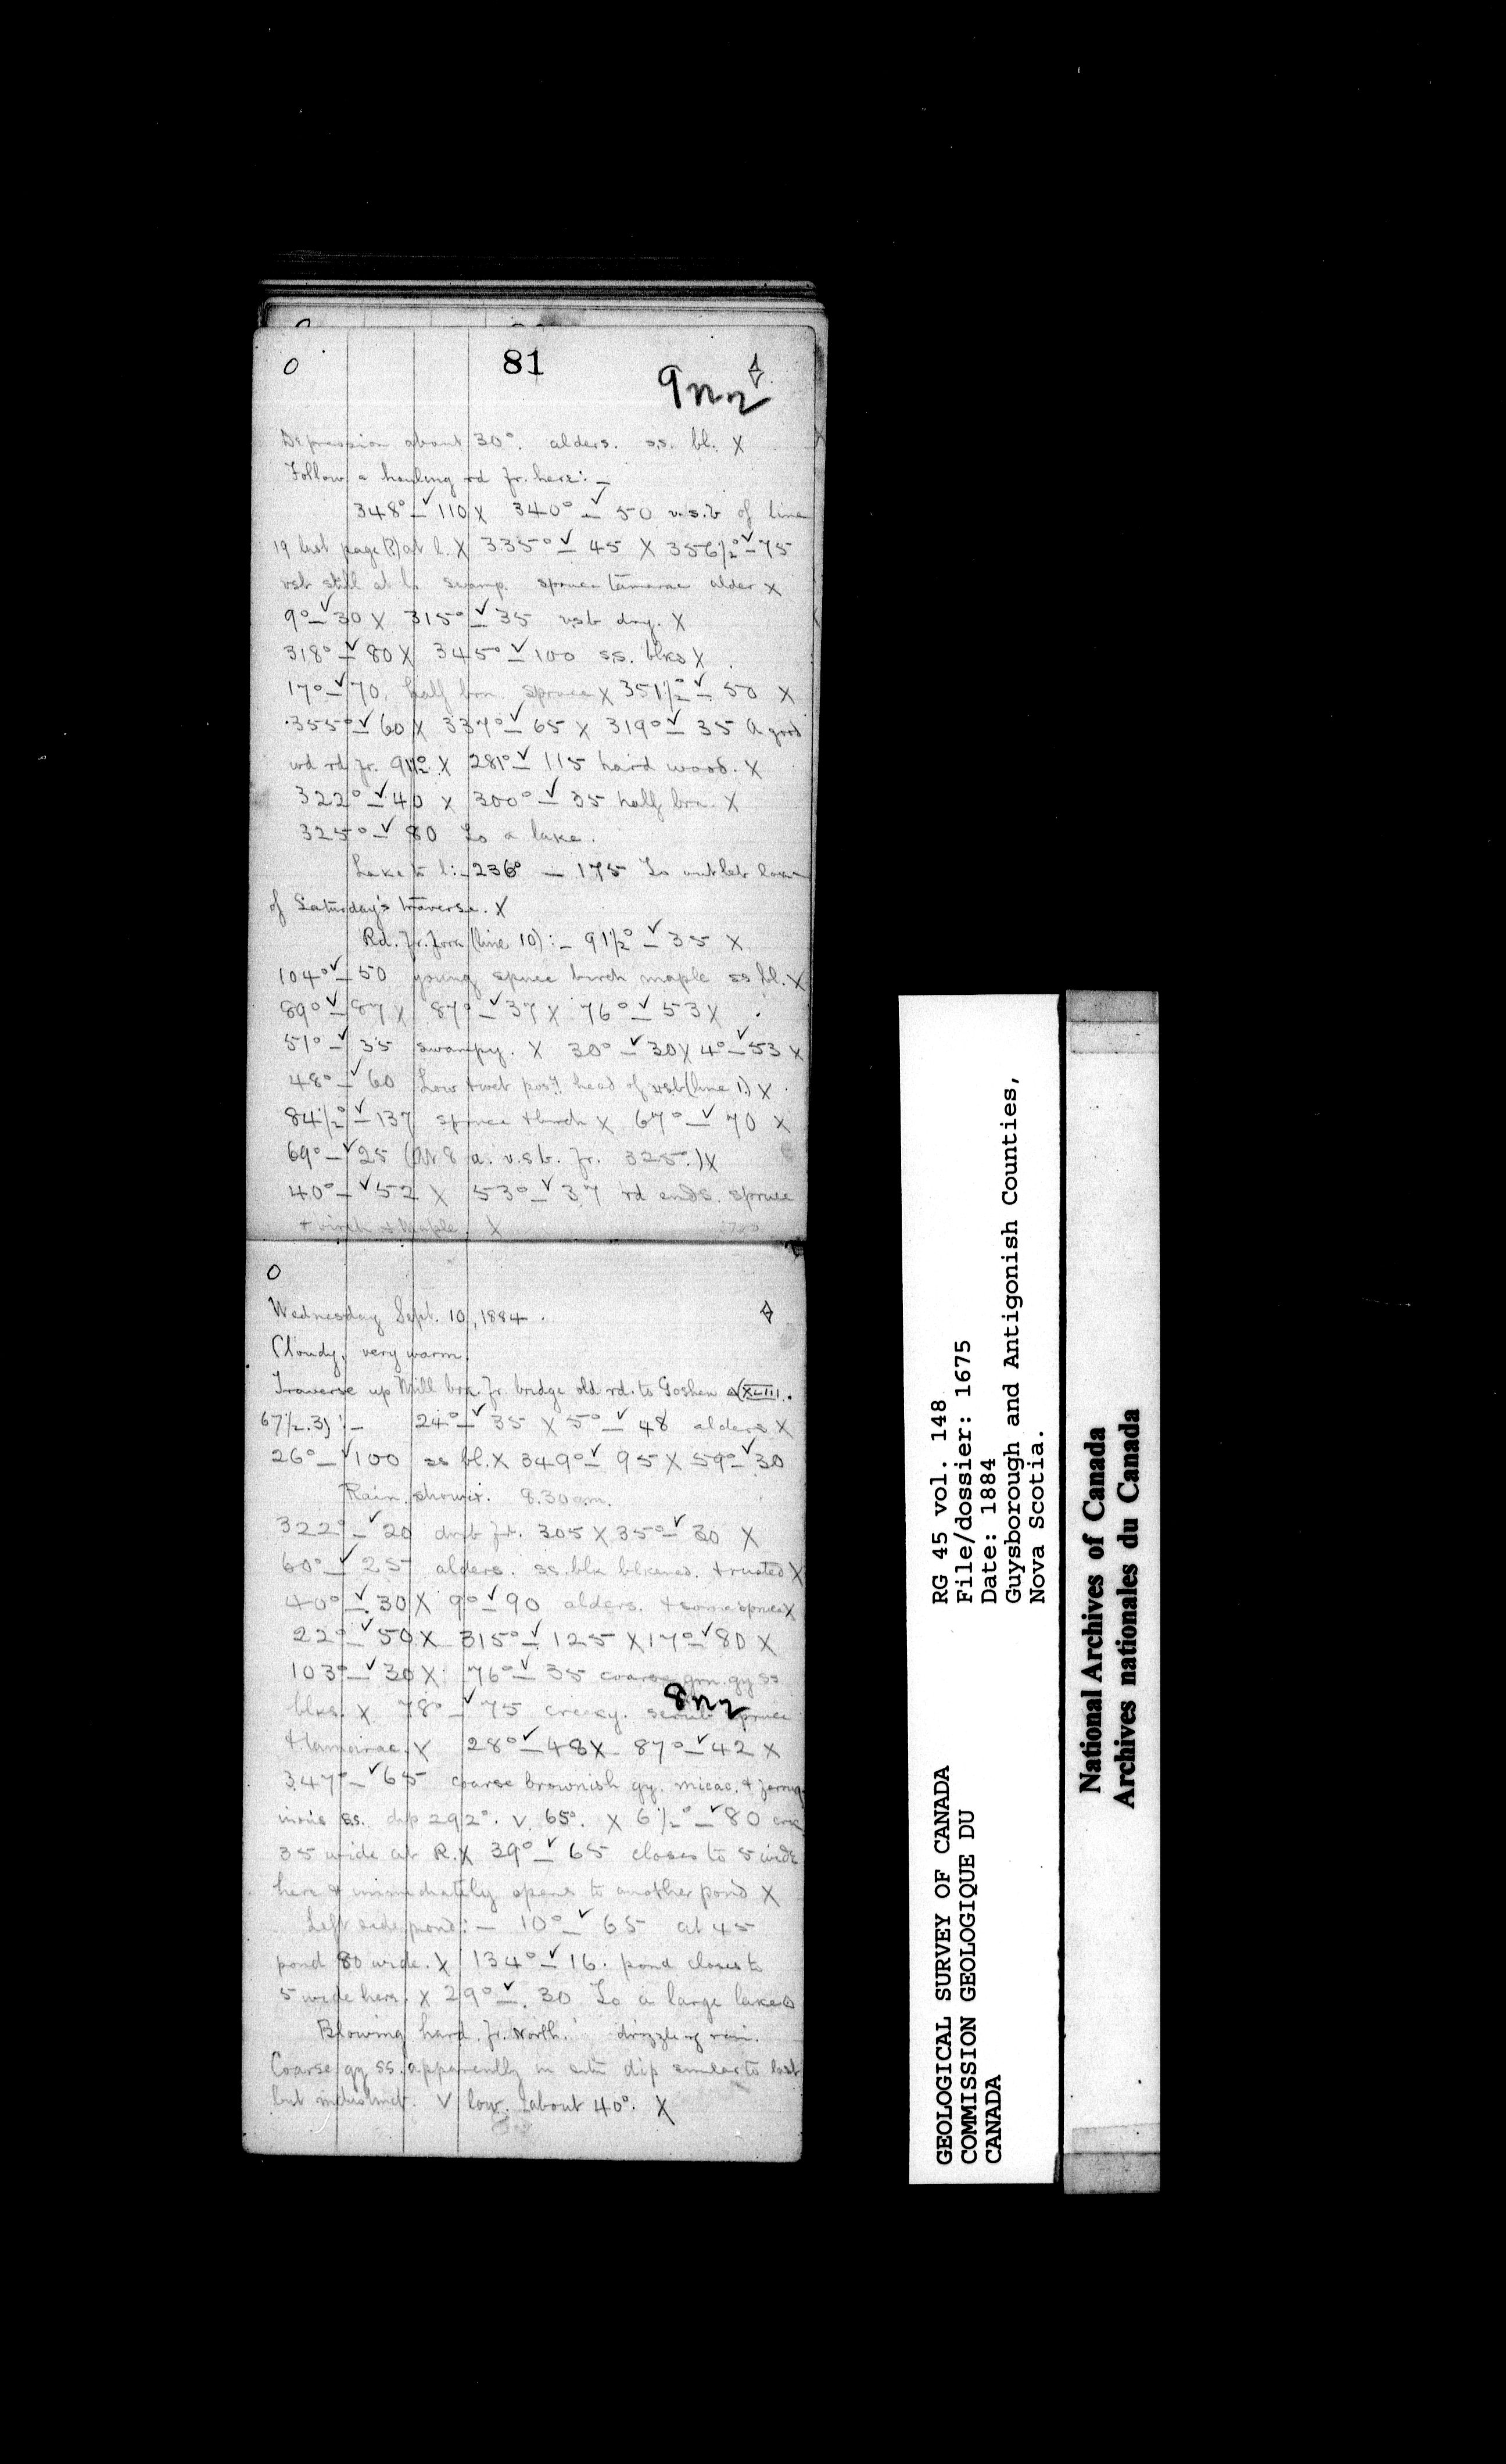 81
9n2
Depression about 30°. alders. ss. bl. X
Follow a hauling rd fr. here:—
348° — ✓ 110 X 340° — ✓ 50 v.s.b of line
19 last page (?) at l. X 335° — ✓ 45 X 356½° — ✓ 75
vsb still at l. swamp. spruce tamarac alder X
9° — ✓ 30 X 315° — ✓ 35 vsb dry. X
318° — ✓ 80 X 345° — ✓ 100 s.s. blks X
17° — ✓ 70. half brn. spruce X 351½° — ✓ 50 X
355° — ✓ 60 X 337° — ✓ 65 X 319° — ✓ 35 A good
wd rd fr. 91½°. X 281° — ✓ 115 hard wood. X
322° — ✓ 40 X 300° — ✓ 35 half brn. X
325° — ✓ 80 To a lake.
Lake to l:— 236° — 175 To outlet
of Saturday's traverse. X
Rd. fr. fork (line 10):— 91½° — ✓ 35 X
104° — ✓ 50 young spruce birch maple ss bl. X
89° — ✓ 87 X 87° — ✓ 37 X 76° — ✓ 53 X
51° — ✓ 35 swampy. X 30° — ✓ 30 X 4° — ✓ 53 X
48° — ✓ 60 Low & wet head of vsb (line 1) X
84½° — ✓ 137 spruce & birch X 67° — ✓ 70 X
69° — ✓ 25 (At 8 a. v.s.b. fr. 325°.) X
40° — ✓ 52 X 53° — ✓ 37 rd ends. spruce
& birch & maple. X
Wednesday Sept. 10, 1884.
Cloudy, very warm.
Traverse up Mill brk. fr. bridge old rd. to Goshen (XLIII.
67½.3):— 24° — ✓ 35 X 5° — ✓ 48 alders X
26° — ✓ 100 ss bl. X 349° — ✓ 95 X 59° — ✓ 30
Rain shower. 8.30 a.m.
322° — ✓ 20 fr. 305 X 35° — ✓ 30 X
60° — ✓ 25 alders. ss. blk blkened. & rusted X
40° — ✓ 30 X 9° — ✓ 90 alders. & some spruce X
22° — ✓ 50 X 315° — ✓ 125 X 17° — ✓ 80 X
103° — ✓ 30 X 76° — ✓ 35 coarse grn. gy ss
8n2
blks. X 78° — ✓ 75 scrub spruce
& tamarac. X 28° — ✓ 48 X 87° — ✓ 42 X
347° — ✓ 65 coarse brownish gy. micac. & ferrug-
inous ss. dip 292°. V 65°. X 6½° — ✓ 80
35 wide at R. X 39° — ✓ 65 closes to 5 wide
here & immediately opens to another pond X
Left side pond:— 10° — ✓ 65 at 45
pond 80 wide. X 134° — ✓ 16. pond closes to
5 wide here. X 29° — ✓ 30 To a large lake
Blowing hard fr. North. drizzling rain.
Coarse gy ss. apparently in situ dip similar to last
but indistinct. V low. about 40°. X
RG 45 vol. 148
File/dossier: 1675
Date: 1884
Guysborough and Antigonish Counties,
Nova Scotia.
GEOLOGICAL SURVEY OF CANADA
COMMISSION GEOLOGIQUE DU
CANADA
National Archives of Canada
Archives nationales du Canada